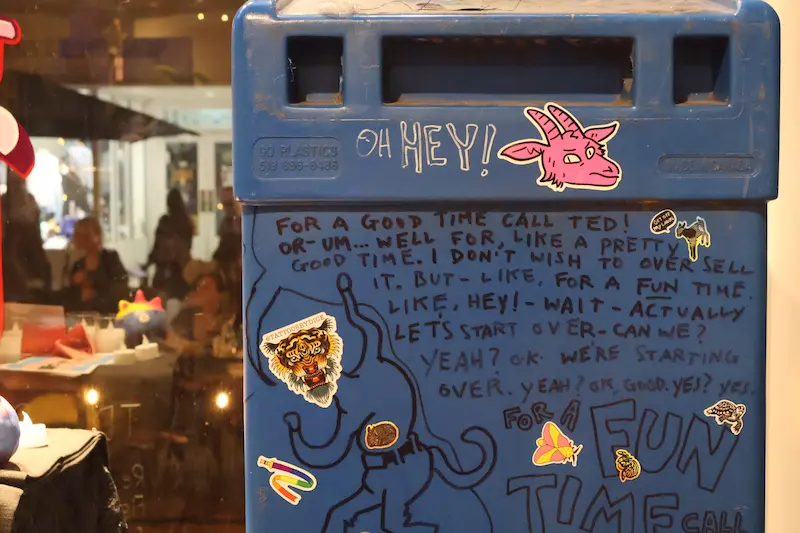 OH HEY!
GO PLASTICS
FOR A GOOD TIME CALL TED!
OR-UM... WELL FOR, LIKE A PRETTY
GOOD TIME. I DON'T WISH TO OVER SELL
IT. BUT- LIKE, FOR A FUN TIME.
LIKE, HEY!- WAIT- ACTUALLY
LET'S START OVER-CAN WE?
YEAH? OK. WE'RE STARTING
OVER. YEAH? OK, GOOD. YES? YES.
FOR A FUN
TIME CALL